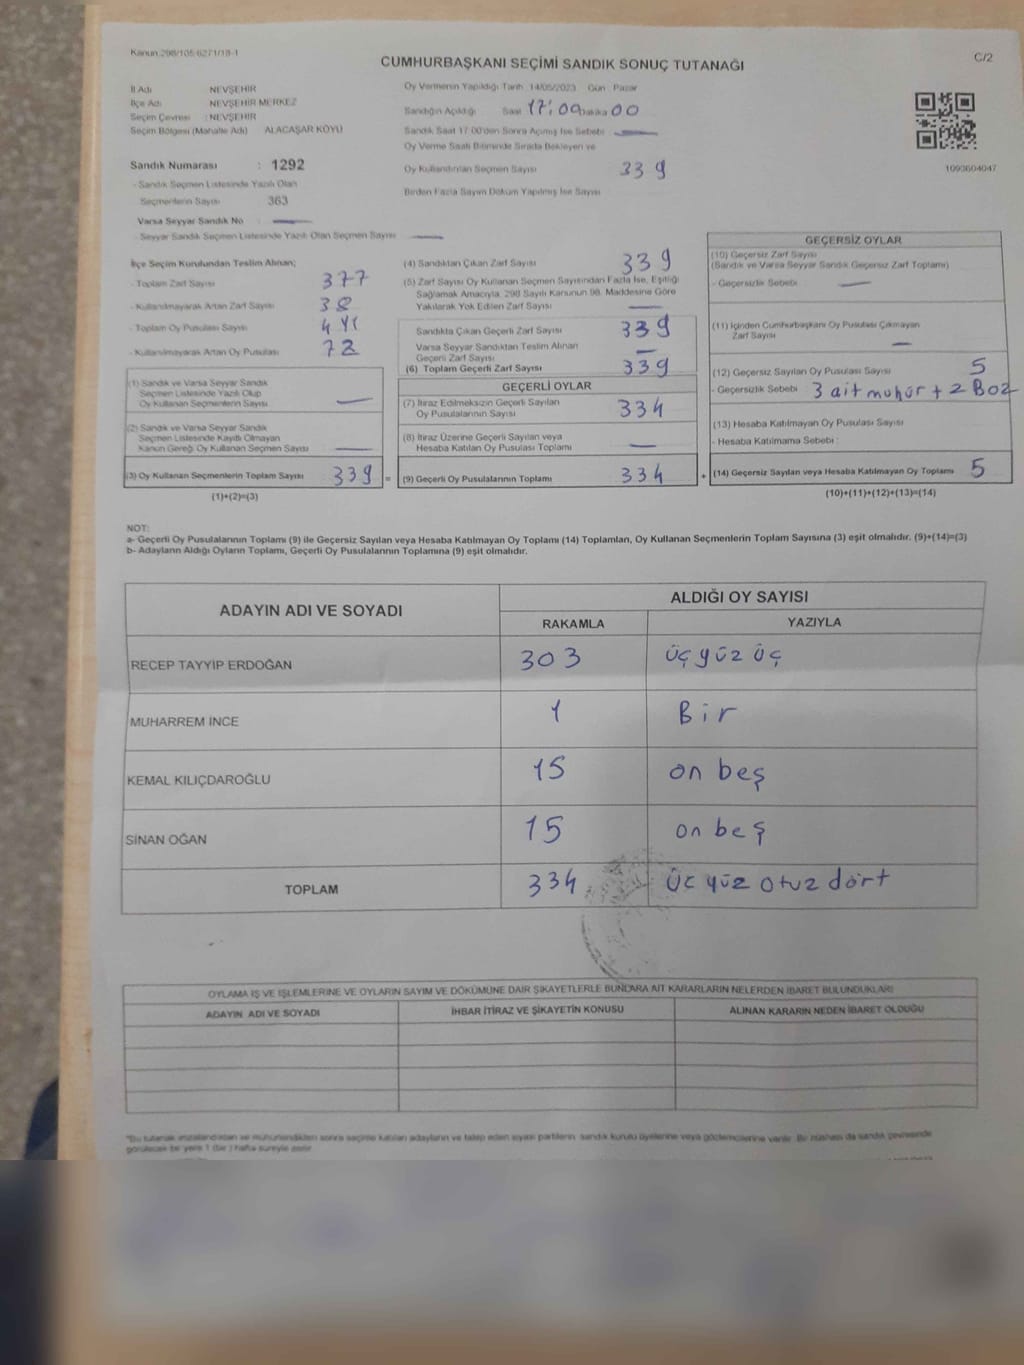 Kanun:298/105:6271/18-1
C/2
CUMHURBAŞKANI SEÇİMİ SANDIK SONUÇ TUTANAĞI
İl Adı NEVŞEHİR
İlçe Adı NEVŞEHİR MERKEZ
Seçim Çevresi : NEVŞEHİR
Seçim Bölgesi (Mahalle Adı) ALACAŞAR KÖYÜ
Oy Vermenin Yapıldığı Tarih 14/05/2023 Gün Pazar
Sandığın Açıldığı Saat 17:00 Dakika 00
Sandık Saat 17:00'den Sonra Açılmış İse Sebebi —
Oy Verme Saati Bitiminde Sırada Bekleyen ve
Oy Kullandırılan Seçmen Sayısı 339
Birden Fazla Sayım Döküm Yapılmış İse Sayısı
1093604047
Sandık Numarası : 1292
- Sandık Seçmen Listesinde Yazılı Olan
Seçmenlerin Sayısı 363
Varsa Seyyar Sandık No : —
- Seyyar Sandık Seçmen Listesinde Yazılı Olan Seçmen Sayısı —
İlçe Seçim Kurulundan Teslim Alınan;
- Toplam Zarf Sayısı 377
- Kullanılmayarak Artan Zarf Sayısı 38
- Toplam Oy Pusulası Sayısı 411
- Kullanılmayarak Artan Oy Pusulası 72
(1) Sandık ve Varsa Seyyar Sandık
Seçmen Listesinde Yazılı Olup
Oy Kullanan Seçmenlerin Sayısı —
(2) Sandık ve Varsa Seyyar Sandık
Seçmen Listesinde Kayıtlı Olmayan
Kanun Gereği Oy Kullanan Seçmen Sayısı —
(3) Oy Kullanan Seçmenlerin Toplam Sayısı 339 =
(1)+(2)=(3)
(4) Sandıktan Çıkan Zarf Sayısı 339
(5) Zarf Sayısı Oy Kullanan Seçmen Sayısından Fazla İse, Eşitliği
Sağlamak Amacıyla, 298 Sayılı Kanunun 98. Maddesine Göre
Yakılarak Yok Edilen Zarf Sayısı —
Sandıkta Çıkan Geçerli Zarf Sayısı 339
Varsa Seyyar Sandıktan Teslim Alınan
Geçerli Zarf Sayısı —
(6) Toplam Geçerli Zarf Sayısı 339
GEÇERLİ OYLAR
(7) İtiraz Edilmeksizin Geçerli Sayılan
Oy Pusulalarının Sayısı 334
(8) İtiraz Üzerine Geçerli Sayılan veya
Hesaba Katılan Oy Pusulası Toplamı —
(9) Geçerli Oy Pusulalarının Toplamı 334 +
GEÇERSİZ OYLAR
(10) Geçersiz Zarf Sayısı
(Sandık ve Varsa Seyyar Sandık Geçersiz Zarf Toplamı)
- Geçersizlik Sebebi —
(11) İçinden Cumhurbaşkanı Oy Pusulası Çıkmayan
Zarf Sayısı —
(12) Geçersiz Sayılan Oy Pusulası Sayısı 5
- Geçersizlik Sebebi 3 ait muhür + 2 Boz
(13) Hesaba Katılmayan Oy Pusulası Sayısı
- Hesaba Katılmama Sebebi :
(14) Geçersiz Sayılan veya Hesaba Katılmayan Oy Toplamı 5
(10)+(11)+(12)+(13)=(14)
NOT:
a- Geçerli Oy Pusulalarının Toplamı (9) ile Geçersiz Sayılan veya Hesaba Katılmayan Oy Toplamı (14) Toplamları, Oy Kullanan Seçmenlerin Toplam Sayısına (3) eşit olmalıdır. (9)+(14)=(3)
b- Adayların Aldığı Oyların Toplamı, Geçerli Oy Pusulalarının Toplamına (9) eşit olmalıdır.
ADAYIN ADI VE SOYADI ALDIĞI OY SAYISI
RAKAMLA YAZIYLA
RECEP TAYYİP ERDOĞAN 303 üç yüz üç
MUHARREM İNCE 1 Bir
KEMAL KILIÇDAROĞLU 15 on beş
SİNAN OĞAN 15 on beş
TOPLAM 334 üç yüz otuz dört
OYLAMA İŞ VE İŞLEMLERİNE VE OYLARIN SAYIM VE DÖKÜMÜNE DAİR ŞİKAYETLERLE BUNLARA AİT KARARLARIN NELERDEN İBARET BULUNDUKLARI
ADAYIN ADI VE SOYADI İHBAR İTİRAZ VE ŞİKAYETİN KONUSU ALINAN KARARIN NEDEN İBARET OLDUĞU
*Bu tutanak imzalandıktan ve mühürlendikten sonra seçime katılan adayların ve talep eden siyasi partilerin sandık kurulu üyelerine veya gözlemcilerine verilir. Bir nüshası da sandık çevresinde
görülecek bir yere 1 (bir) hafta süreyle asılır.